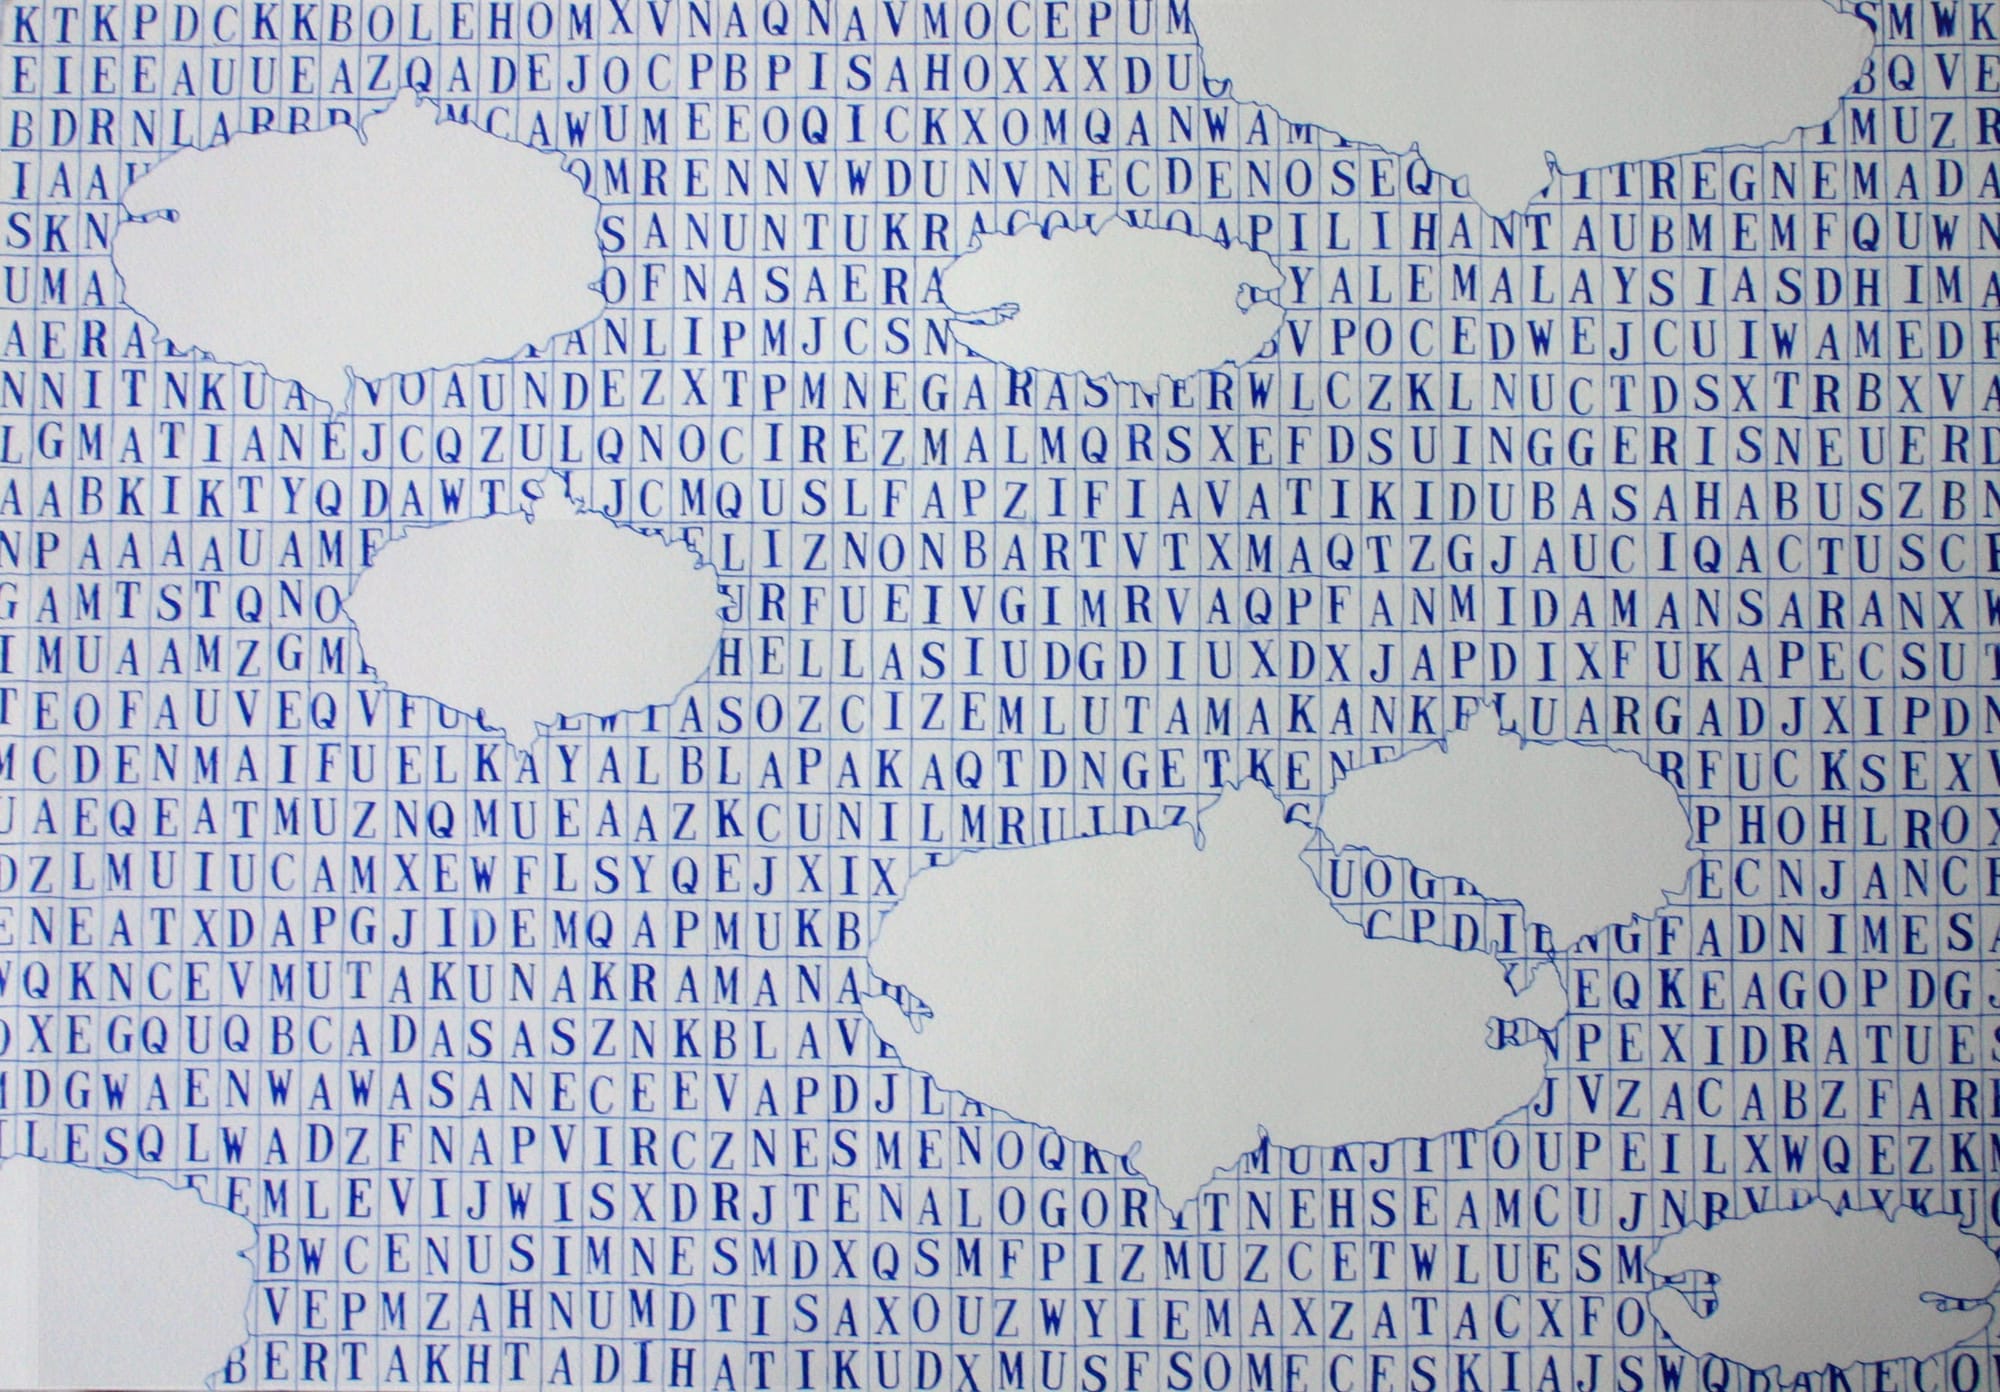 KTKPDCKKBOLEHOMXVNAQNAVMOCEPUM SMWK
EIEEAUUEAZQADEJOCPBPISAHOXXXDU BQVE
BDRNLARBR MCAWUMEEOQICKXOMQANWAM IMUZR
IAAU OMRENNVWDUNVNECDENOSEQ ITREGNEMADA
SKN SANUNTUKRA APILIHANTAUBMEMFQUWN
UMA OFNASAERA YALEMALAYSIASDHIMA
AERA ANLIPMJCSN VPOCEDWEJCUIWAMEDF
NNITNKUA VOAUNDEZXTPMNEGARASNERWLCZKLNUCTDSXTRBXVA
LGMATIANEJCQZULQNOCIREZMALMQRSXEFDSUINGGERISNEUERD
AABKIKTYQDAWTS JCMQUSLFAPZIFIAVATIKIDUBASAHABUSZBN
NPAAAAUAME ELIZNONBARTVTXMAQTZGJAUCIQACTUSCE
GAMTSTQNO URFUEIVGIMRVAQPFANMIDAMANSARANXW
IMUAAMZGM HELLASIUDGDIUXDXJAPDIXFUKAPECSUT
TEOFAUVEQVFU WIASOZCIZEMLUTAMAKANKFLUARGADJXIPDN
MCDENMAIFUELKAYALBLAPAKAQTDNGETKEN RFUCKSEXV
UAEQEATMUZNQMUEAAZKCUNILMRUIDZ PHOHLROX
DZLMUIUCAMXEWFLSYQEJXIX UOG ECNJANCE
ENEATXDAPGJIDEMQAPMUKB CPDI NGFADNIMESA
VQKNCEVMUTAKUNAKRAMANA EQKEAGOPDGJ
DXEGQUQBCADASASZNKBLAV PEXIDRATUES
MDGWAENWAWASANECEEVAPDJLA JVZACABZFAR
LLESQLWADZFNAPVIRCZNESMENOQK MUKJITOUPEILXWQEZKM
EMLEVIJWISXDRJTENALOGOR TNEHSEAMCUJN
BWCENUSIMNESMDXQSMFPIZMUZCETWLUESM
VEPMZAHNUMDTISAXOUZWYIEMAXZATACXFO
BERTAKHTADIHATIKUDXMUSFSOMECESKIAJSWQ